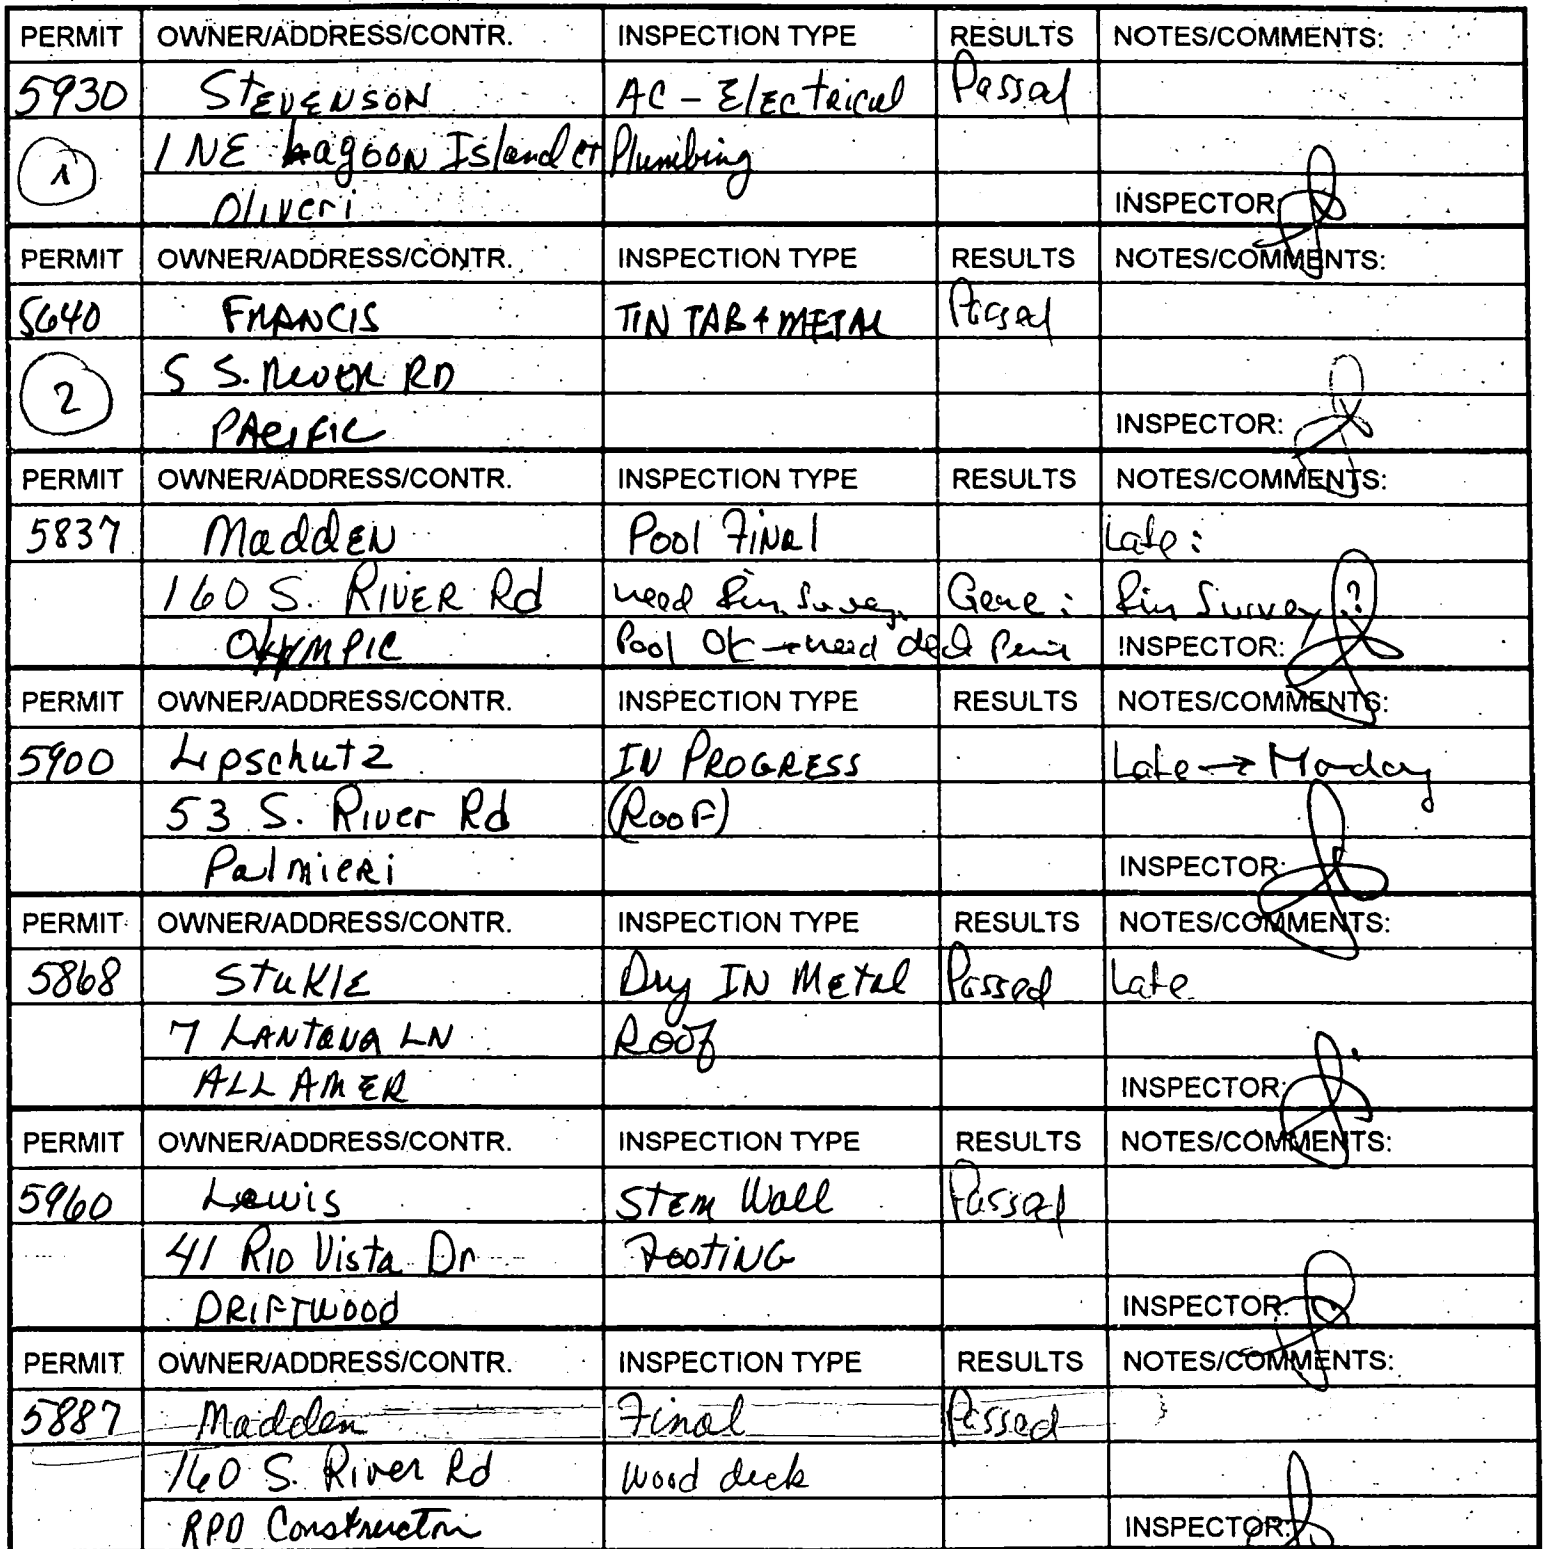 PERMIT OWNER/ADDRESS/CONTR. INSPECTION TYPE RESULTS NOTES/COMMENTS:
5930 STEVENSON AC - Electrical Passed
1 1 NE Lagoon Island Ct Plumbing
Oliveri INSPECTOR:
PERMIT OWNER/ADDRESS/CONTR. INSPECTION TYPE RESULTS NOTES/COMMENTS:
5640 FRANCIS TIN TAB + METAL Passed
2 5 S. RIVER RD
PACIFIC INSPECTOR:
PERMIT OWNER/ADDRESS/CONTR. INSPECTION TYPE RESULTS NOTES/COMMENTS:
5837 Madden Pool Final Late:
160 S. RIVER Rd need Survey Gene: Survey?
OLYMPIC Pool OK → need deck INSPECTOR:
PERMIT OWNER/ADDRESS/CONTR. INSPECTION TYPE RESULTS NOTES/COMMENTS:
5900 Lipschutz IN PROGRESS Late → Monday
53 S. River Rd (Roof)
Palmieri INSPECTOR:
PERMIT OWNER/ADDRESS/CONTR. INSPECTION TYPE RESULTS NOTES/COMMENTS:
5868 Stukle Dry IN Metal Passed Late
7 LANTANA LN Roof
ALL AMER INSPECTOR:
PERMIT OWNER/ADDRESS/CONTR. INSPECTION TYPE RESULTS NOTES/COMMENTS:
5960 Lewis STEM Wall Passed
41 Rio Vista Dr FOOTING
DRIFTWOOD INSPECTOR:
PERMIT OWNER/ADDRESS/CONTR. INSPECTION TYPE RESULTS NOTES/COMMENTS:
5887 Madden Final Passed
160 S. River Rd wood deck
RPD Construction INSPECTOR: